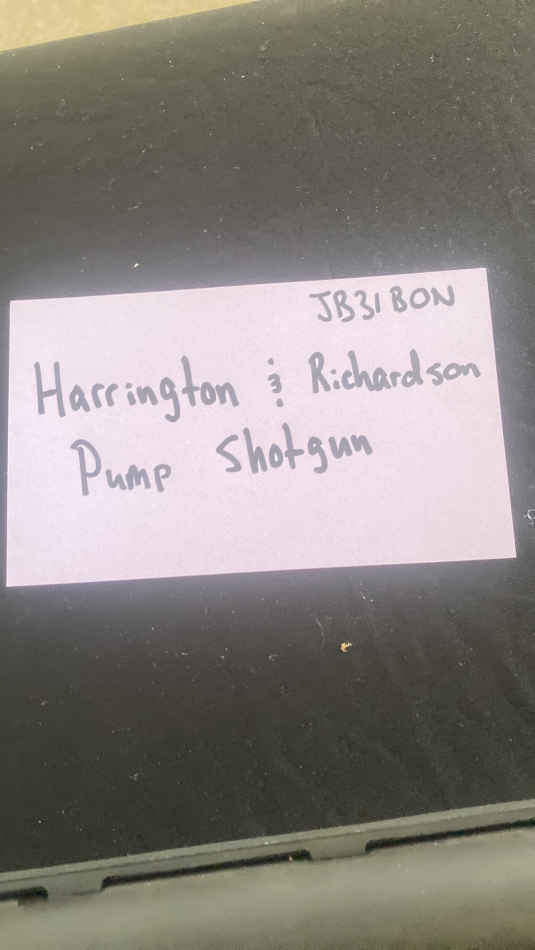 JB31BON
Harrington & Richardson
Pump Shotgun